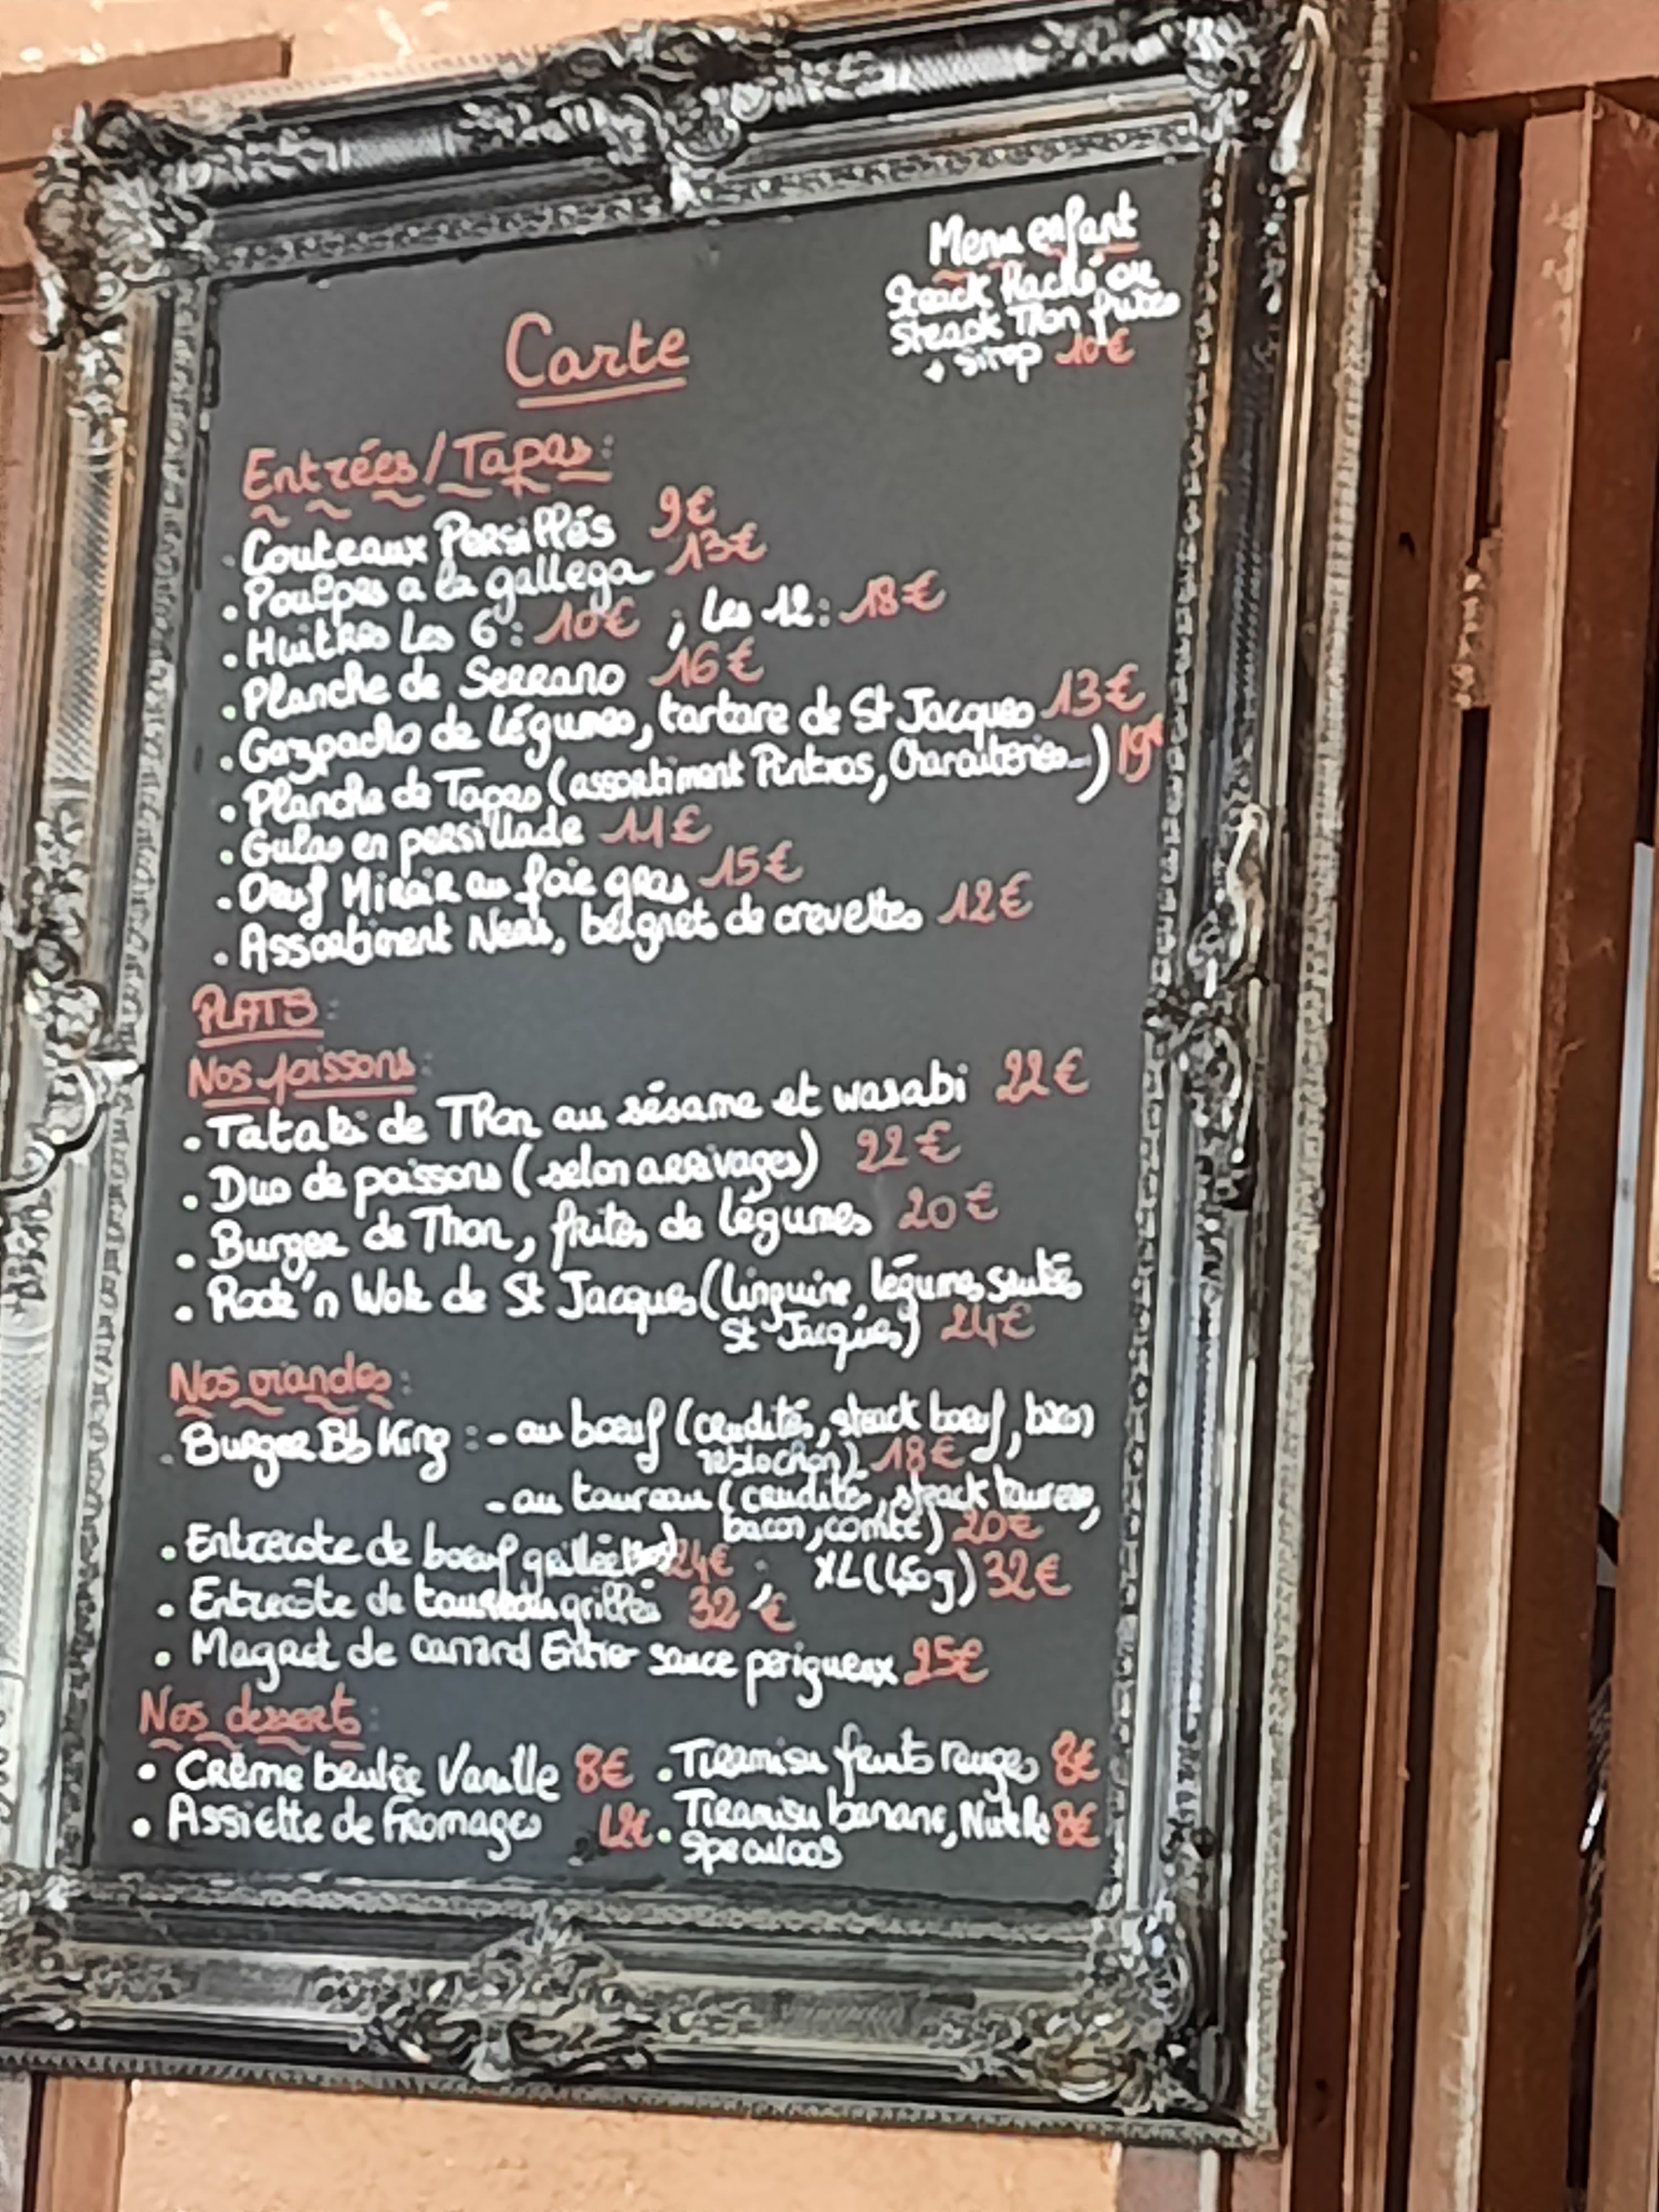 Menu enfant
Steack Haché ou
Steack Thon frites
+ sirop 10€
Carte
Entrées/Tapas:
. Couteaux Persillés 9€
. Poulpes a la gallega 13€
. Huitres Les 6: 10€ ; Les 12: 18€
. Planche de Serrano 16€
. Gazpacho de légumes, tartare de St Jacques 13€
. Planche de Tapas (assortiment Pintxos, Charcuteries...) 19€
. Gulas en persillade 11€
. Oeuf Miroir au foie gras 15€
. Assortiment Nems, beignets de crevettes 12€
PLATS:
Nos poissons:
. Tataki de Thon au sésame et wasabi 22€
. Duo de poissons (selon arrivages) 22€
. Burger de Thon, frites de légumes 20€
. Rock'n Wok de St Jacques (linguine, légumes sautés
St Jacques) 24€
Nos viandes:
. Burger Bb King: - au boeuf (crudités, steack boeuf, bacon
reblochon) 18€
- au taureau (crudités, steack taureau,
bacon, comté) 20€
. Entrecote de boeuf grillée 24€ XL (450g) 32€
. Entrecôte de taureau grillée 32€
. Magret de canard Entier sauce perigueux 25€
Nos desserts:
. Crème brulée Vanille 8€ . Tiramisu fruits rouges 8€
. Assiette de Fromages 12€ . Tiramisu banane, Nutella 8€
Speculoos